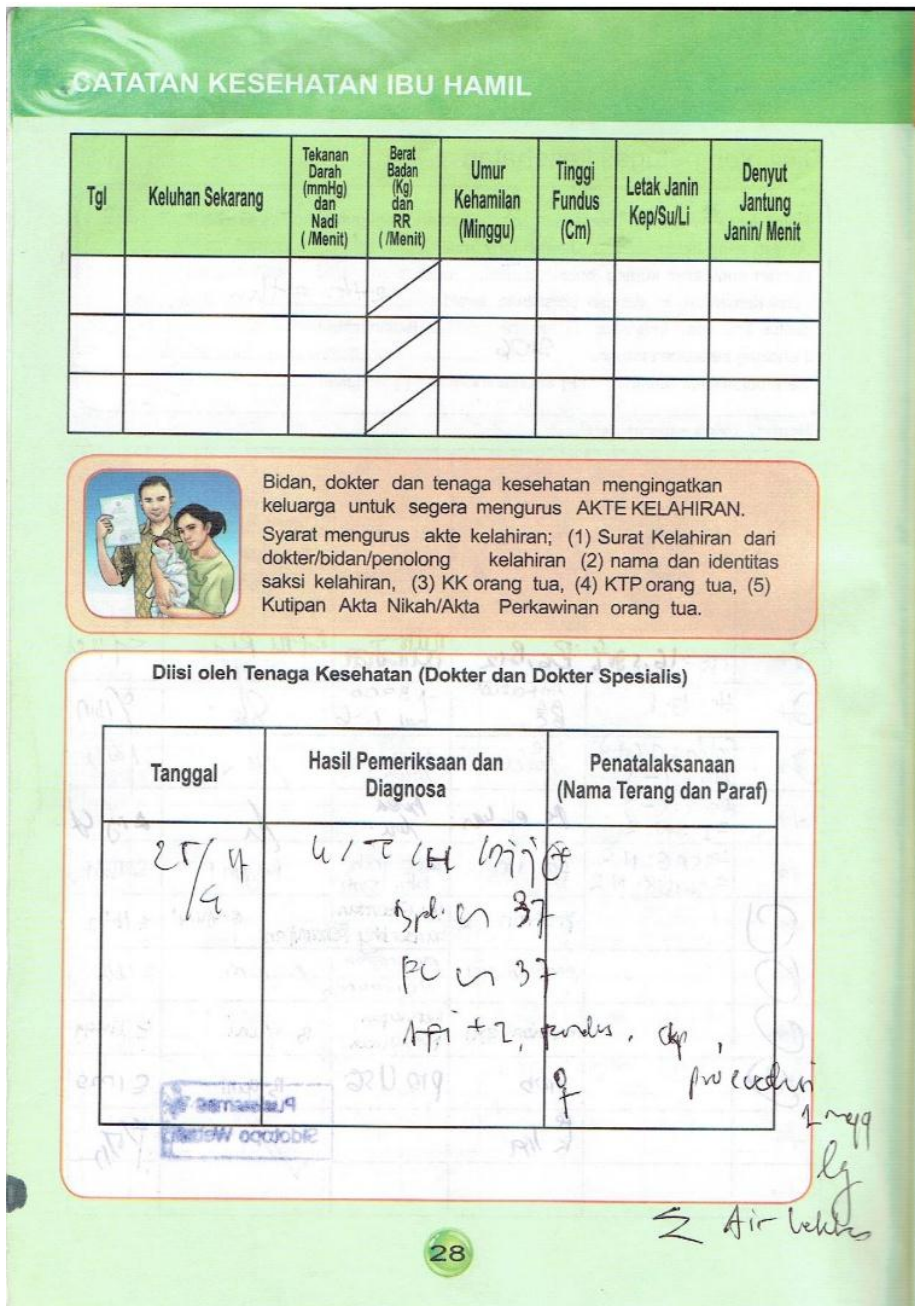 CATATAN KESEHATAN IBU HAMIL
Tgl
Keluhan Sekarang
Tekanan Darah (mmHg) dan Nadi ( /Menit)
Berat Badan (Kg) dan RR ( /Menit)
Umur Kehamilan (Minggu)
Tinggi Fundus (Cm)
Letak Janin Kep/Su/Li
Denyut Jantung Janin/ Menit
Bidan, dokter dan tenaga kesehatan mengingatkan
keluarga untuk segera mengurus AKTE KELAHIRAN.
Syarat mengurus akte kelahiran; (1) Surat Kelahiran dari
dokter/bidan/penolong kelahiran (2) nama dan identitas
saksi kelahiran, (3) KK orang tua, (4) KTP orang tua, (5)
Kutipan Akta Nikah/Akta Perkawinan orang tua.
Diisi oleh Tenaga Kesehatan (Dokter dan Dokter Spesialis)
Tanggal
Hasil Pemeriksaan dan Diagnosa
Penatalaksanaan (Nama Terang dan Paraf)
37
37
28